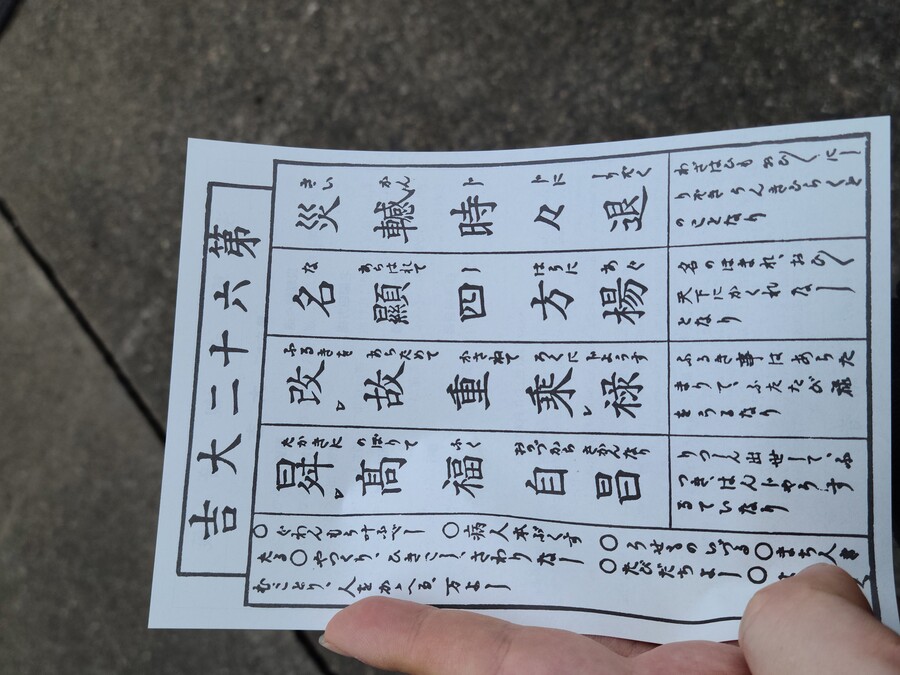 第六十二大吉
さい かん じ じに しりぞく
災轗時々退
わざはひも おひ〱にし
りぞき うんきひらくと
のことなり
な あらはれて し はうに あぐ
名顯四方楊
名のほまれ、おひ〱
天下にかくれなし
となり
ふるきを あらためて かさねて ろくに じようず
改レ故重乗レ禄
ふるき事はあらた
まりて、ふたたび禄
をうるなり
たかきに のぼりて ふく おのづから さかんなり
曻レ髙福自昌
りつしん出せして、ふ
つき、はんじやうす
るていなり
〇ぐわんもう叶ふべし 〇病人本ぶくす 〇うせものいづる〇まち人き
たる〇やづくり、ひきこし、さわりなし 〇たびだちよし〇
むことり、人をかゝへる、万よし